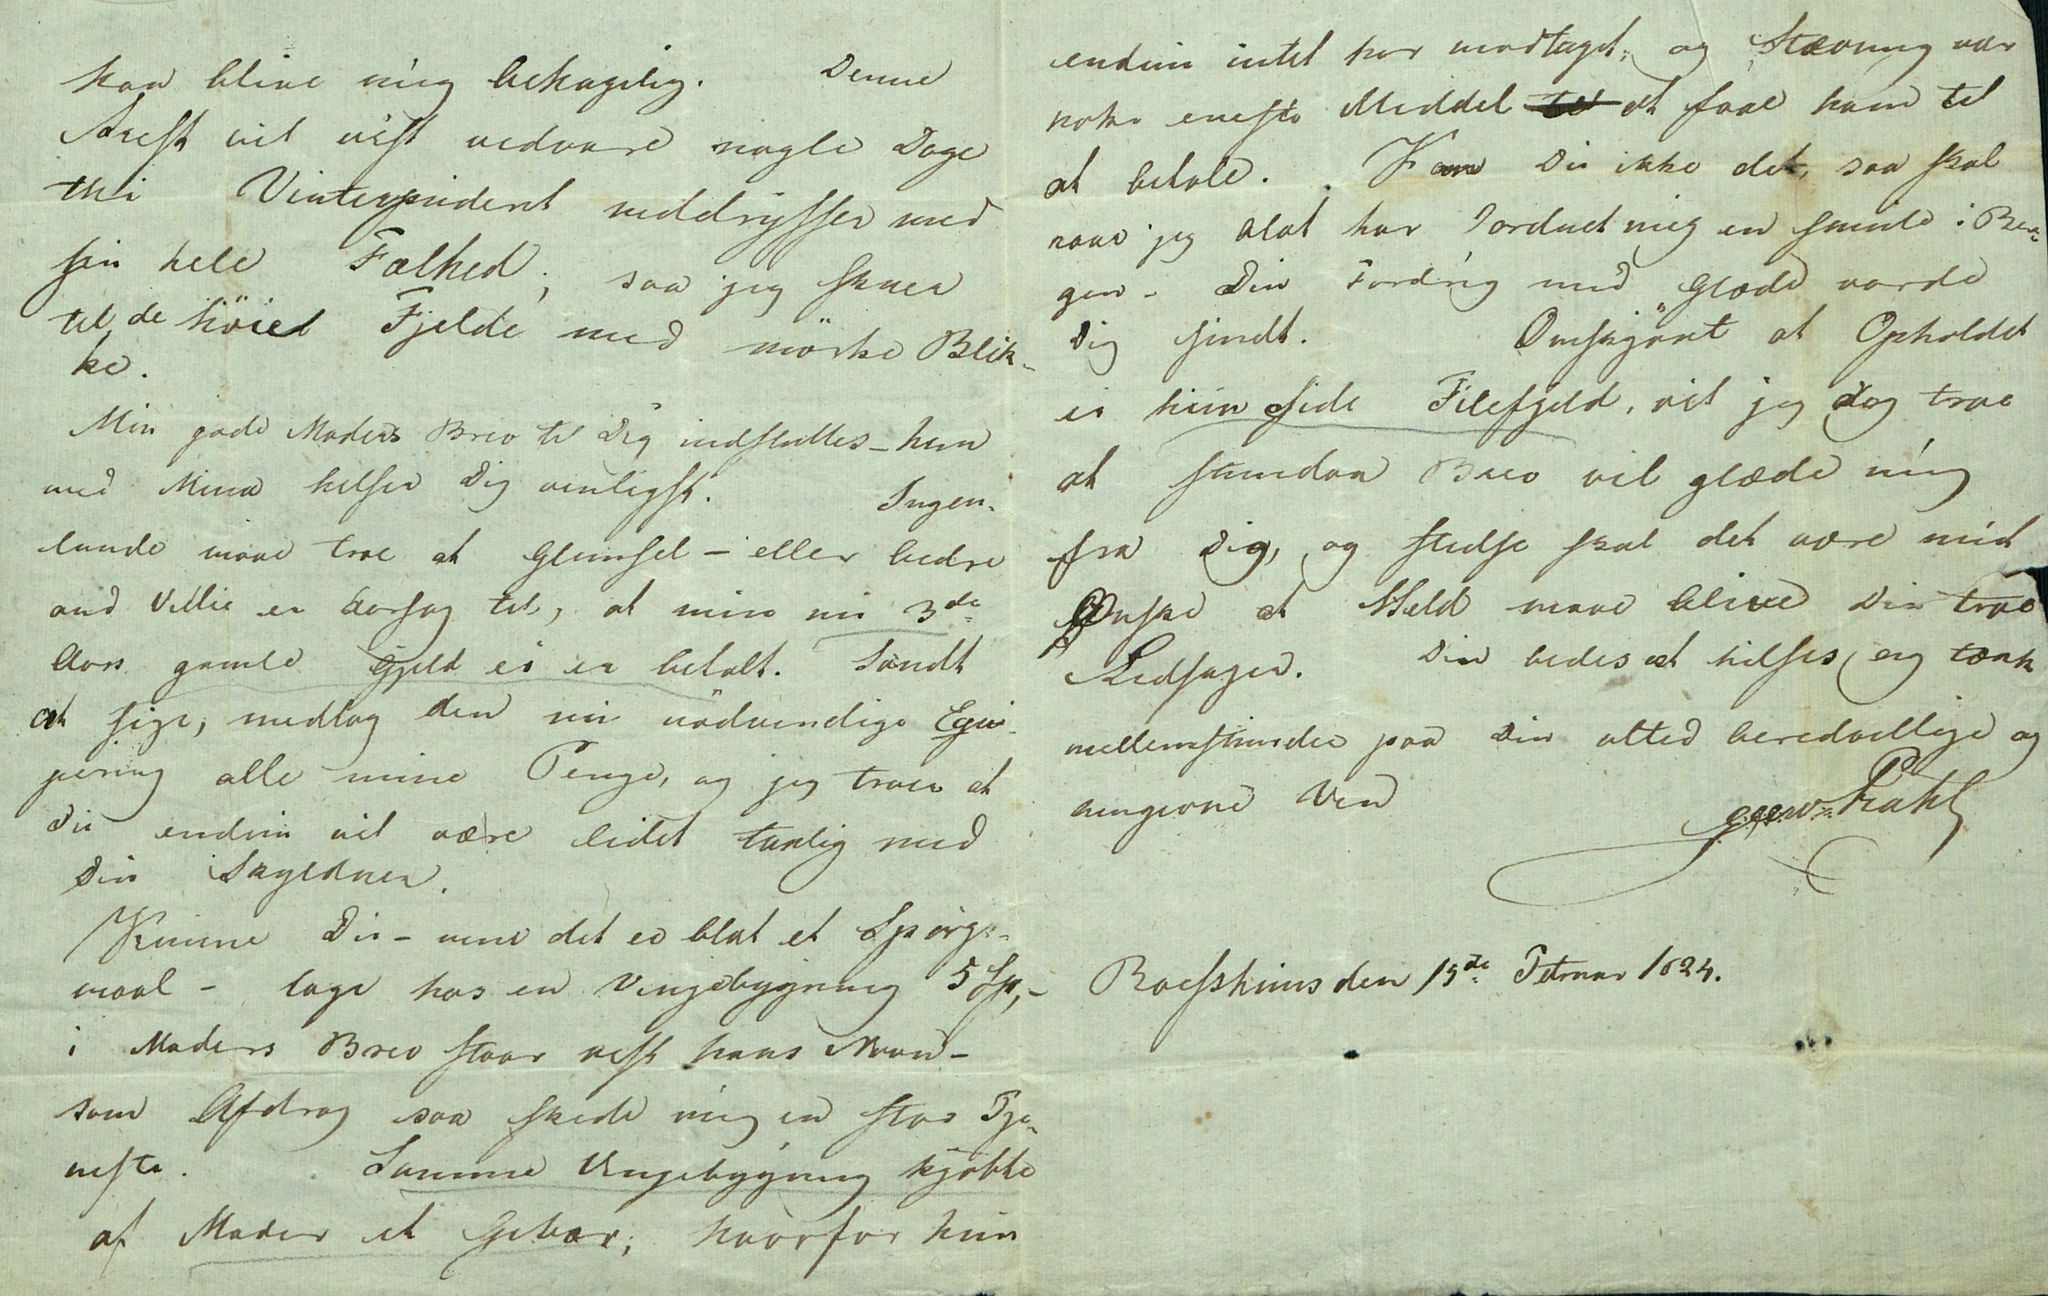 kan blive mig behagelig. Denne
Arest vil vist vedvare nogle Dage
thi Vinteren neddrysser med
sin hele Fælhed; saa jeg skuer
til de höie Fjelde med mörke Blik-
ke.
Min gode Moders Brev til Dig indsluttes - hun
med Mina helser Dig venligst. Ingen-
lunde maae troe at Glemsel - eller bedre
ond Villie er Aarsag til, at min nu 3de
Aars gamle Gjeld ei er betalt. Sandt
at sige, medtog den nu nödvendige Equi-
pering alle mine Penge, og jeg troer at
Du endnu vil være lidet taalig med
Din Skyldner.
Kunne Du - men det er blot et Spörgs-
maal - tage hos en Vengebygning 5 Sp,-
i Moders Brev staar vist hans Navn -
som Afdrag saa skede mig en stor Tje-
neste. Samme Vengebygning kjöbte
af Moder et Gevær; hvorfor hun
endnu intet har modtaget; og Stævning var
nok eneste Middel at faae ham til
at betale. Kan Du ikke det, saa skal
naar jeg blot har ordnet mig en smule i Ber-
gen - Din Fordring med Glæde vorde
Dig sendt. Omskjönt at Opholdet
er hiin Side Filefjeld, vil jeg dog troe
at stundom Brev vil glæde mig
fra Dig, og stedse skal det være mit
Önske at Held maae blive Din troe
Ledsager. Din bedes at hilses og tænk
mellemstunder paa Din altid beredvillige og
hengivne Ven
Prahl
Roesheims den 15de Februar 1824.